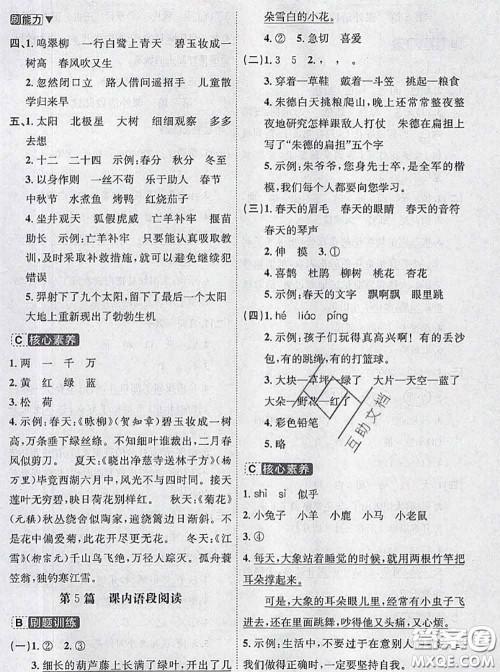 图能力▼
四、1. 鸣翠柳 一行白鹭上青天 碧玉妆成一
树高 春风吹又生
2. 忽然闭口立 路人借问遥招手 儿童散
学归来早
五、1. 太阳 北极星 大树 细细观察 多多
去想
2. 十二 二十四 示例：春分 秋分 冬至
3. 一团和气 一丝一毫 乐于助人 春节
中秋节 水煮鱼 烤鸭 红烧茄子
4. 坐井观天 狐假虎威 亡羊补牢 揠苗
助长 示例：亡羊补牢 只要认真吸取教
训，及时采取补救措施，就可以避免继续犯
错误
5. 羿射下了九个太阳，留下了最后一个太阳
大地上重新现出了勃勃生机
C 核心素养
1. 两 一 千 万
2. 黄 红 绿 蓝
3. 松 荷
4. 示例：春天：《咏柳》（贺知章）碧玉妆成一树
高，万条垂下绿丝绦。不知细叶谁裁出，二月春
风似剪刀。 夏天：《晓出净慈寺送林子方》（杨
万里）毕竟西湖六月中，风光不与四时同。接天
莲叶无穷碧，映日荷花别样红。 秋天：《菊花》
（元稹）秋丛绕舍似陶家，遍绕篱边日渐斜。不
是花中偏爱菊，此花开尽更无花。 冬天：《江
雪》（柳宗元）千山鸟飞绝，万径人踪灭。孤舟蓑
笠翁，独钓寒江雪。
第5篇 课内语段阅读
B 刷题训练
(一) 1. ② ③ ①
3. 细长的葫芦藤上长满了绿叶，开出了几
朵雪白的小花。
4. ② 5. 急切 喜爱
(二) 1. 3 5 2. , , 。
3. 穿着—草鞋 戴着—斗笠 挑起—粮食
4. 朱德白天挑粮爬山，晚上还常常整夜整
夜地研究怎样跟敌人打仗 朱德的扁担上
写了“朱德的扁担”五个字
5. 示例：朱老师，您身先士卒，是全军的楷
模，我们每个人都要向您学习。
(三) 1. 春天的眉毛 春天的眼睛 春天的音符
春天的琴声
2. 伸 摸 3. ①
4. 喜鹊 杜鹃 柳树 桃花 杏花
5. 示例：春天的文字 飘啊飘 眼里跳
(四) 1. hé liáo píng
2. 示例：孩子们玩得真高兴啊！有的丢沙
包，有的跳绳，有的打篮球。
3. 大块—草坪—绿了 大片—天空—蓝了
大朵—野花—红了
4. 彩色铅笔
5. 略
C 核心素养
1. shì sì 似乎
2. 小兔子 小羊 小鹿 小马 小老鼠
3. ②
4. 每天，大象站着睡觉的时候，就用两根竹竿把
耳朵撑起来。
示例：大象的耳朵耷拉着，经常有小虫子飞
进去，在里面跳舞，吵得大象又头痛，又心烦。
5. 示例：不对，自己认定正确的事要坚持下去，
不能因为别人的议论而不坚持自我。
互助文档